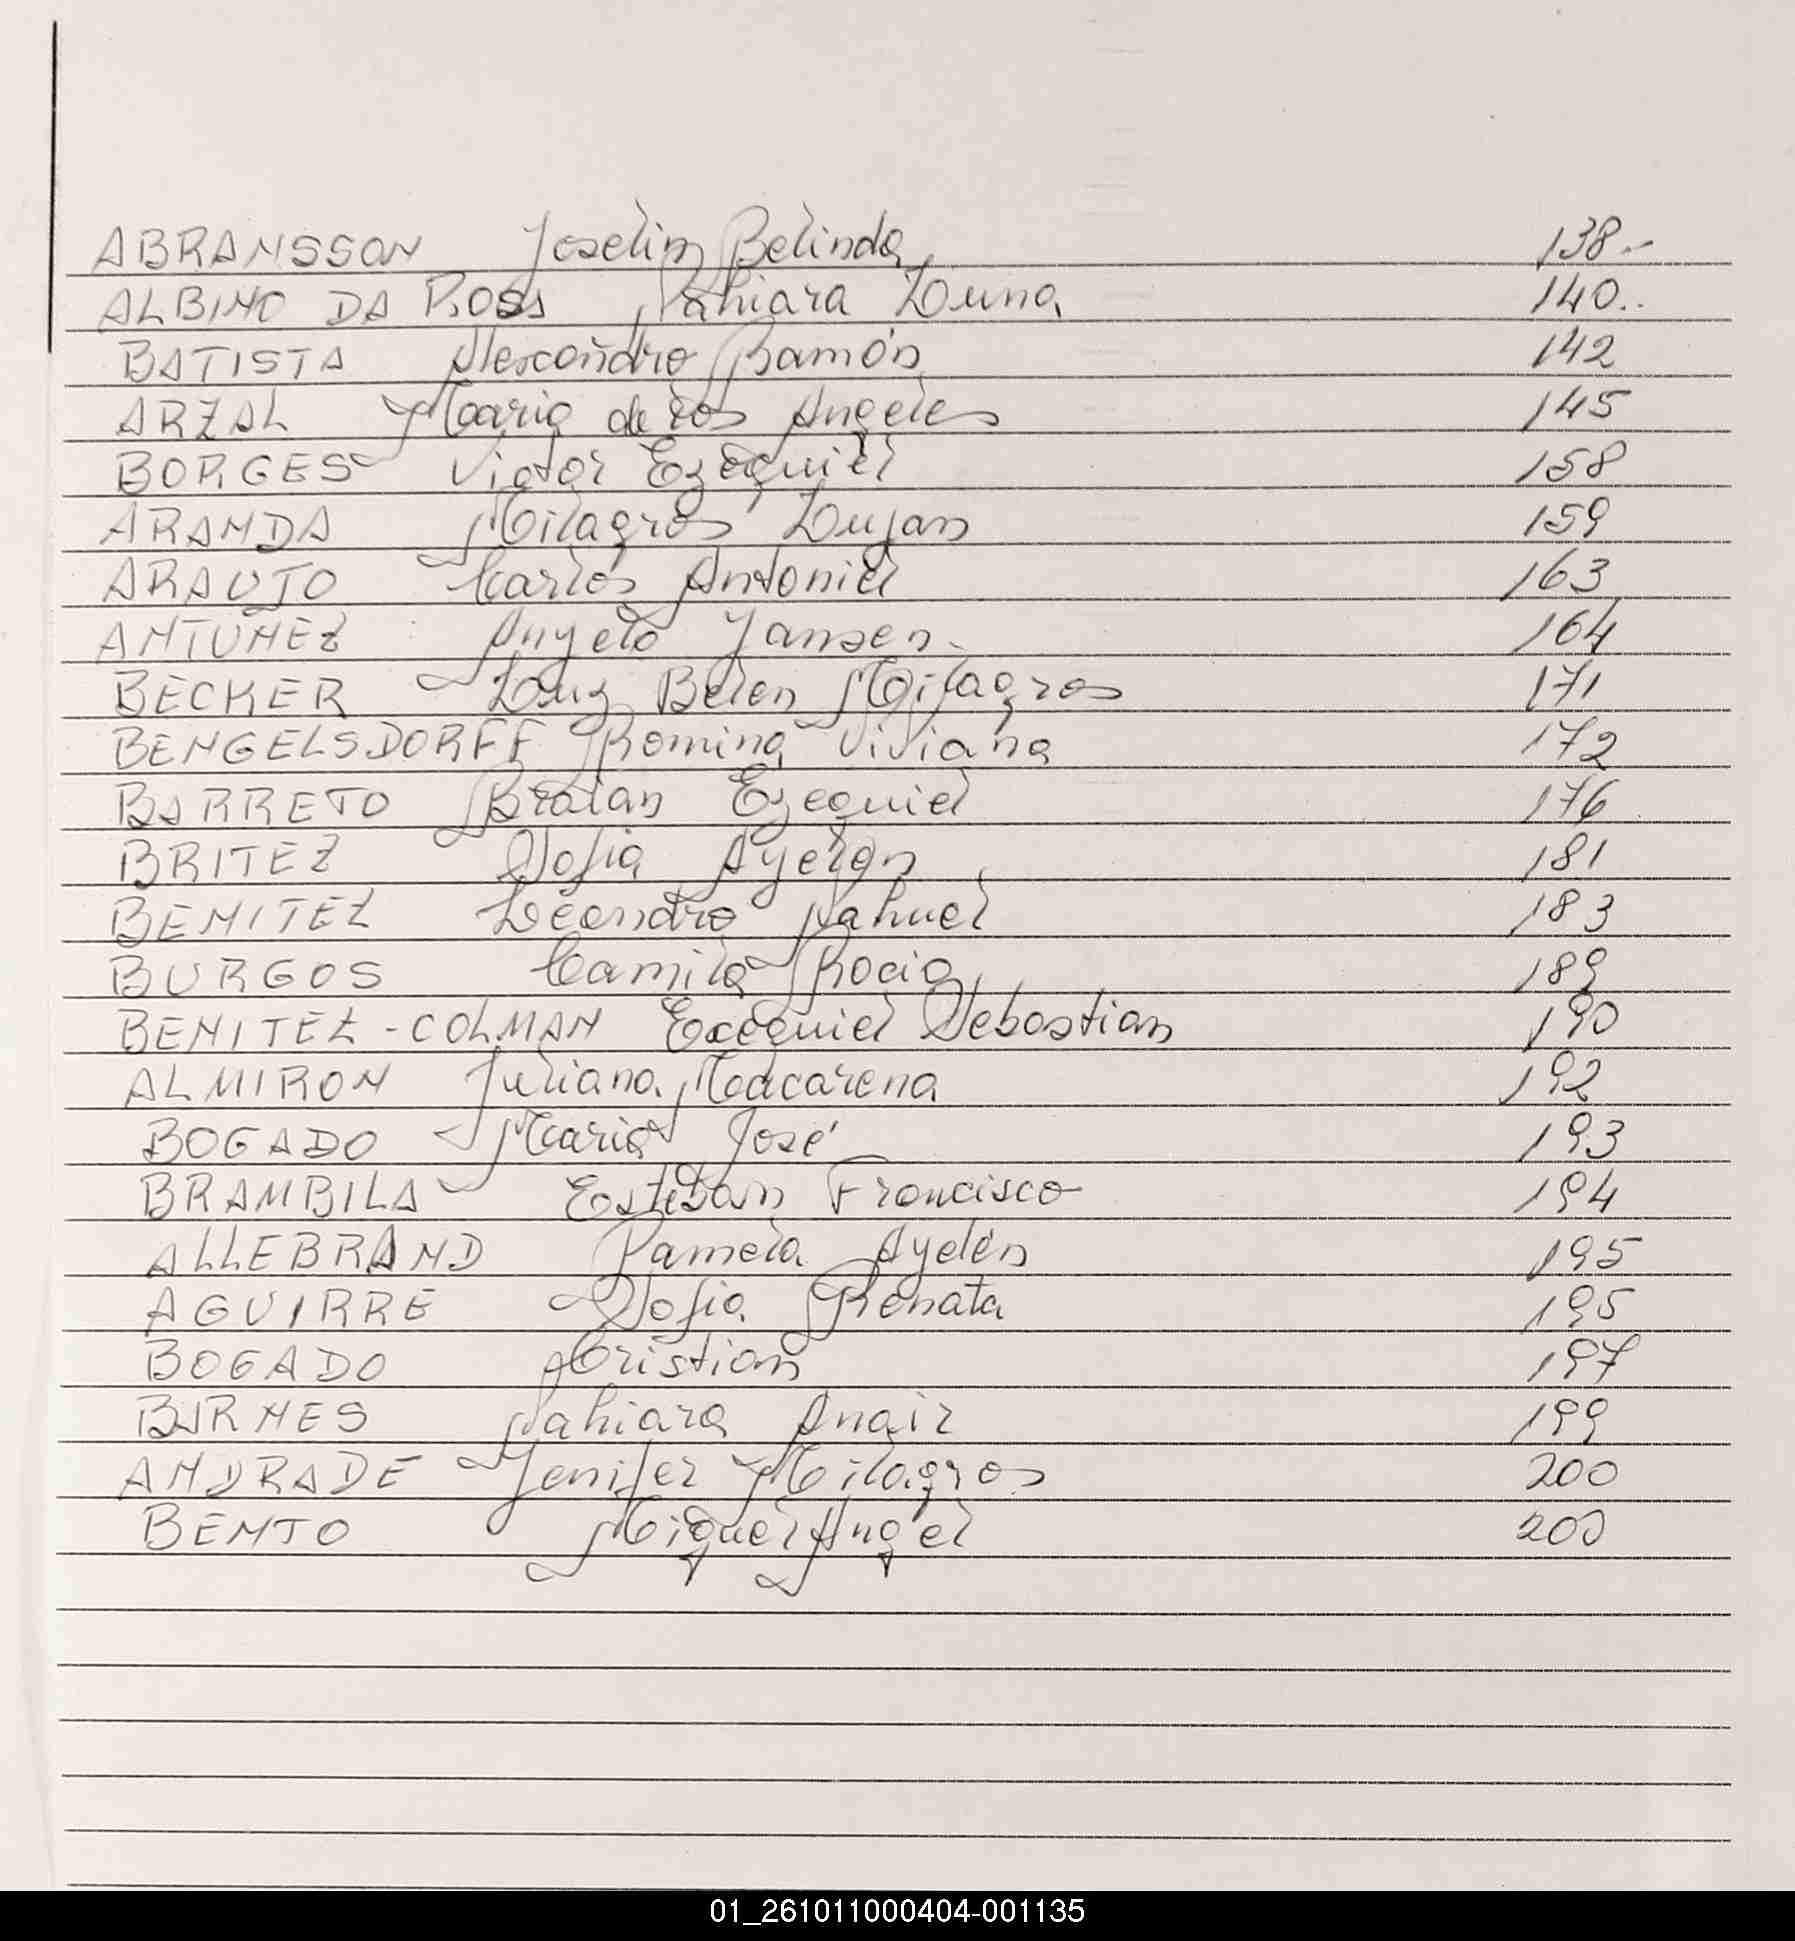 ABRANSSON Joselin Belinda 138.-
ALBINO DA ROSA Nahiara Luna 140..
BATISTA Alexandro Ramón 142
ARZAL Maria de los Angeles 145
BORGES Victor Ezequiel 158
ARANDA Milagros Lujan 159
ARAUJO Carlos Antoniel 163
ANTUNEZ Angelo Jansen. 164
BECKER Luz Belen Milagros 171
BENGELSDORFF Romina Viviana 172
BARRETO Braian Ezequiel 176
BRITEZ Sofia Ayelen 181
BENITEZ Leandro Nahuel 183
BURGOS Camila Rocio 189
BENITEZ-COLMAN Exequiel Sebastian 190
ALMIRON Juliana Macarena 192
BOGADO Maria José 193
BRAMBILA Esteban Francisco 194
ALLEBRAND Pamela Ayelén 195
AGUIRRE Sofia Renata 195
BOGADO Cristian 197
BARNES Nahiara Anair 199
ANDRADE Jenifer Milagros 200
BENTO Miguel Angel 200
01_261011000404-001135